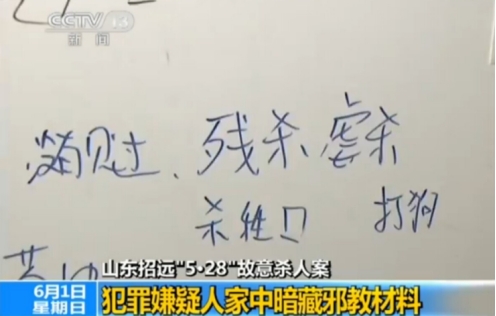 CCTV 13
新闻
残杀 虐杀
杀牲口 打狗
山东招远"5·28"故意杀人案
6月1日
星期日
犯罪嫌疑人家中暗藏邪教材料